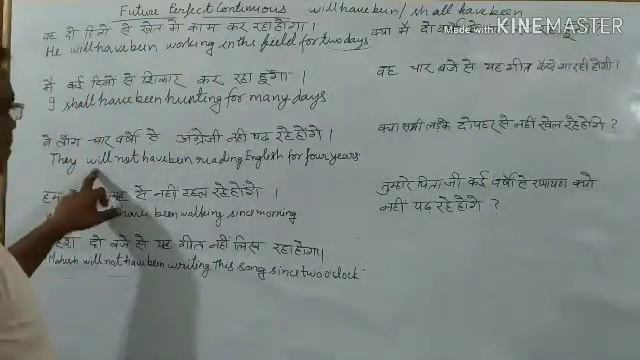 Future Perfect Continuous will have been / shall have been
वह दो दिनो से खेत मे काम कर रहा होगा ।
He will have been working in the field for two days
मै कई दिनो से शिकार कर रहा हूँगा ।
I shall have been hunting for many days.
वे लोग चार वर्षो से अंग्रेजी नही पढ़ रहे होंगे ।
They will not have been reading English for four years.
हम से नहीं टहल रहे होंगे ।
have been walking since morning.
दो बजे से यह गीत नहीं लिख रहा होगा।
Mahesh will not have been writing this song since two o'clock.
क्या मै दो
वह चार बजे से यह गीत कैसे गा रही होगी ?
क्या सभी लड़के दोपहर से नहीं खेल रहे होंगे ?
तुम्हारे पिता जी कई वर्षो से रामायण क्यो
नहीं पढ़ रहे होंगे ?
Made with
KINEMASTER